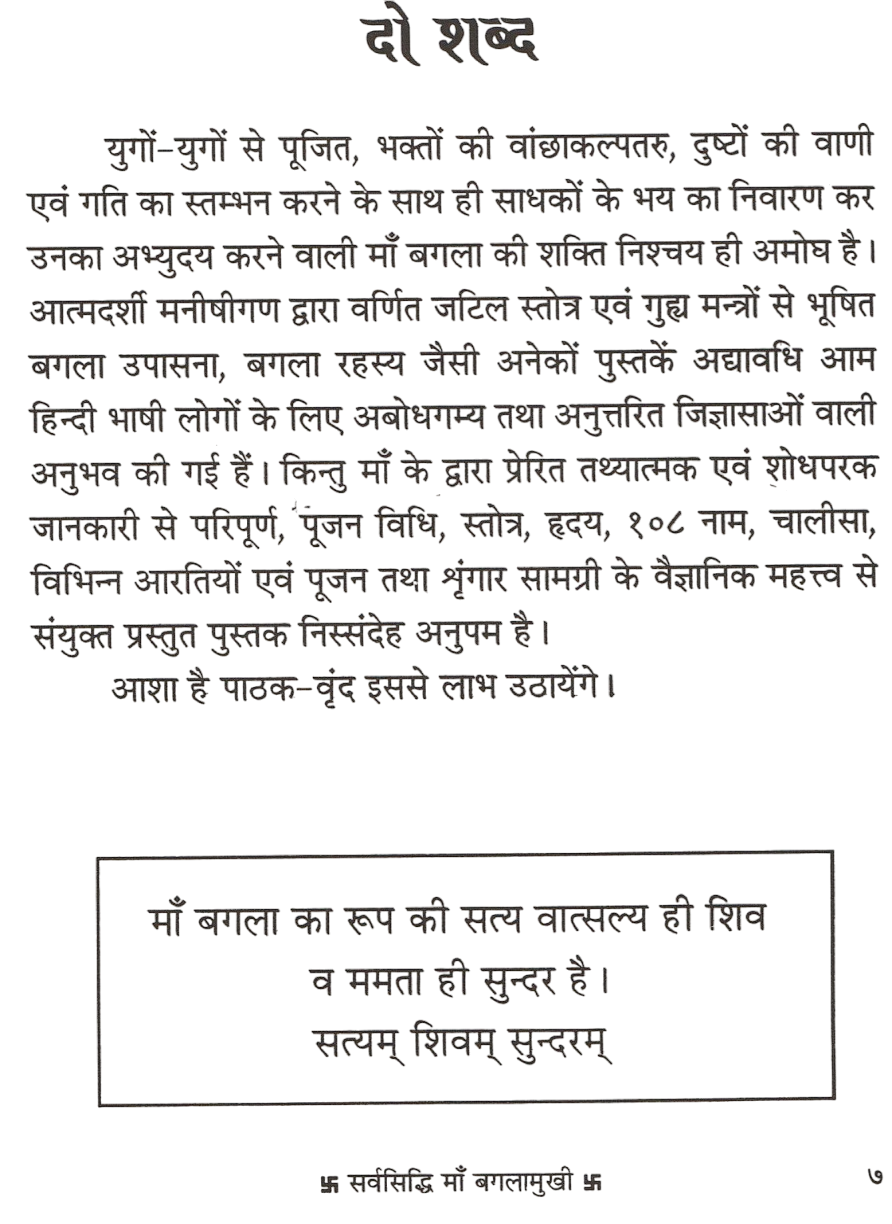 दो शब्द
युगों-युगों से पूजित, भक्तों की वांछाकल्पतरु, दुष्टों की वाणी
एवं गति का स्तम्भन करने के साथ ही साधकों के भय का निवारण कर
उनका अभ्युदय करने वाली माँ बगला की शक्ति निश्चय ही अमोघ है।
आत्मदर्शी मनीषीगण द्वारा वर्णित जटिल स्तोत्र एवं गुह्य मन्त्रों से भूषित
बगला उपासना, बगला रहस्य जैसी अनेकों पुस्तकें अद्यावधि आम
हिन्दी भाषी लोगों के लिए अबोधगम्य तथा अनुत्तरित जिज्ञासाओं वाली
अनुभव की गई हैं। किन्तु माँ के द्वारा प्रेरित तथ्यात्मक एवं शोधपरक
जानकारी से परिपूर्ण, पूजन विधि, स्तोत्र, हृदय, १०८ नाम, चालीसा,
विभिन्न आरतियों एवं पूजन तथा श्रृंगार सामग्री के वैज्ञानिक महत्त्व से
संयुक्त प्रस्तुत पुस्तक निस्संदेह अनुपम है।
आशा है पाठक-वृंद इससे लाभ उठायेंगे।
माँ बगला का रूप की सत्य वात्सल्य ही शिव
व ममता ही सुन्दर है।
सत्यम् शिवम् सुन्दरम्
卐 सर्वसिद्धि माँ बगलामुखी 卐 ७